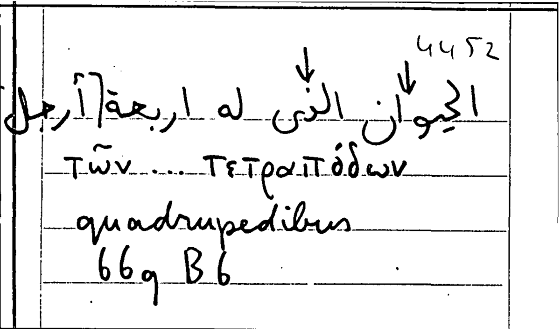 4452
الحيوان الذى له اربعة [أرجل
τῶν ... τετραπόδων
quadrupedibus
669 B6